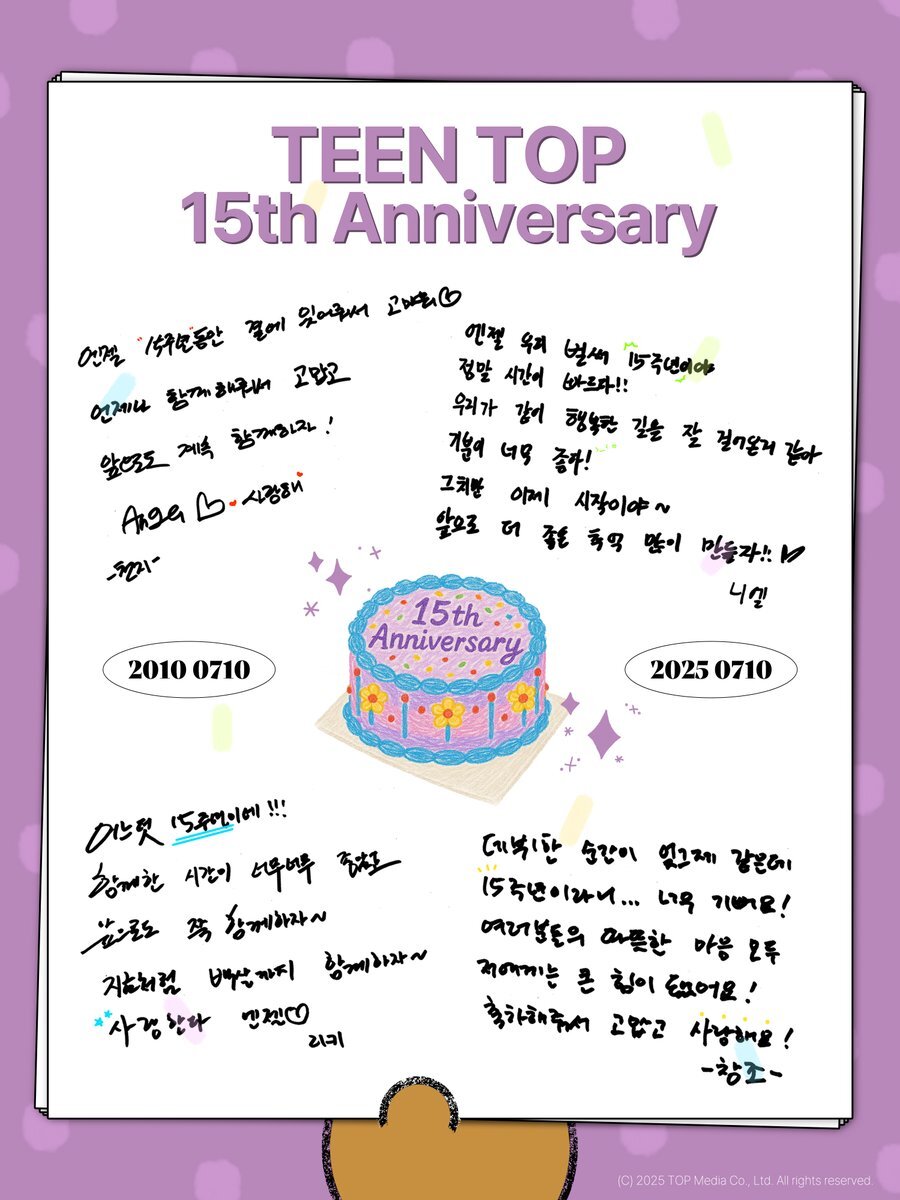 TEEN TOP
15th Anniversary
엔젤 "15주년"동안 곁에 있어줘서 고마워♡
언제나 함께해줘서 고맙고
앞으로도 계속 함께하자!
Angel ♡ 사랑해
-천지-
엔젤 우리 벌써 15주년이야
정말 시간이 빠르다!!
우리가 같이 행복한 길을 잘 걸어온거 같아
기분이 너무 좋아!
그치만 이제 시작이야~
앞으로 더 좋은 추억 많이 만들자!! ♡
니엘
15th
Anniversary
2010 0710
2025 0710
어느덧 15주년이에!!!
함께한 시간이 너무너무 좋았고
앞으로도 쭉 함께하자~
지금처럼 백살까지 함께하자~
사랑한다 엔젤♡
리키
데뷔한 순간이 엊그제 같은데
15주년이라니... 너무 기뻐요!
여러분들의 따뜻한 마음 모두
저에게는 큰 힘이 됐어요!
축하해줘서 고맙고 사랑해요!
-창조-
(C) 2025 TOP Media Co., Ltd. All rights reserved.